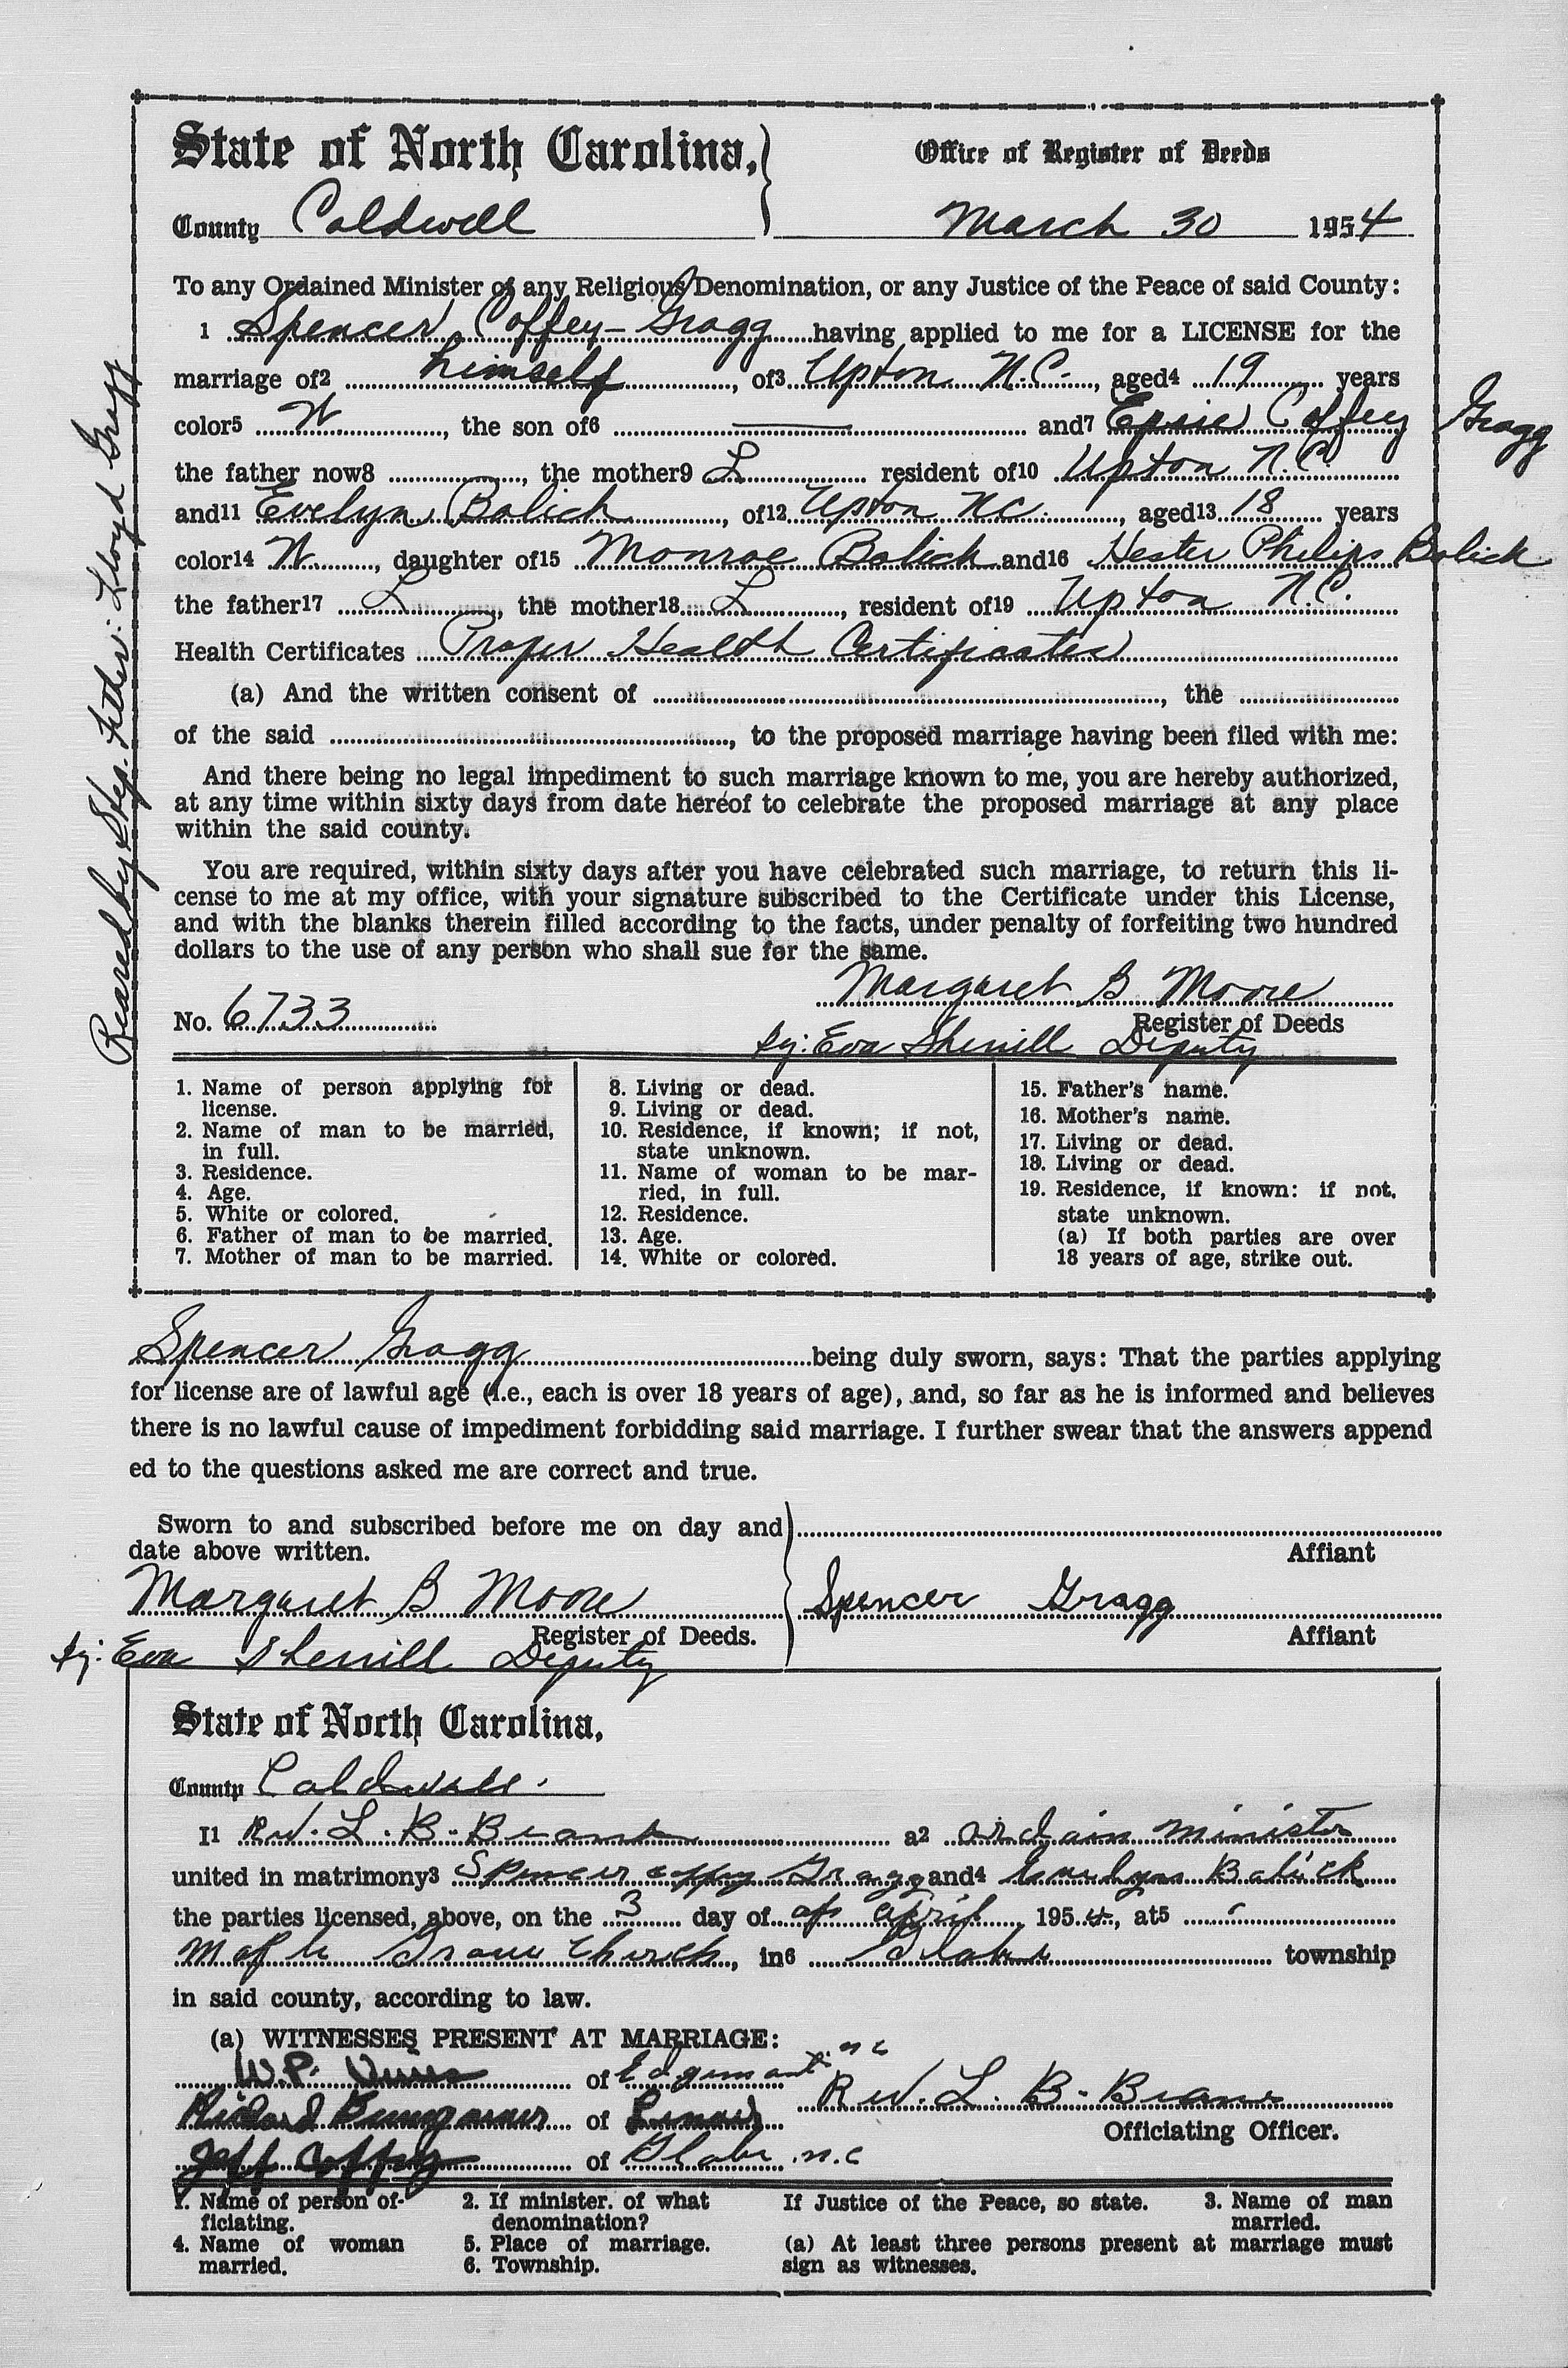 State of North Carolina,
Office of Register of Deeds
County Caldwell
March 30 1954
To any Ordained Minister of any Religious Denomination, or any Justice of the Peace of said County:
1 Spencer Coffey-Gragg having applied to me for a LICENSE for the
marriage of2 himself, of3 Upton N.C., aged4 19 years
color5 W, the son of6 — and7 Epsie Coffey Gragg
the father now8, the mother9 L resident of10 Upton N.C.
and11 Evelyn Bolich, of12 Upton NC, aged13 18 years
color14 W, daughter of15 Monroe Bolick and16 Hester Philips Bolick
the father17 L, the mother18 L, resident of19 Upton N.C.
Health Certificates Proper Health Certificates
(a) And the written consent of , the
of the said , to the proposed marriage having been filed with me:
And there being no legal impediment to such marriage known to me, you are hereby authorized,
at any time within sixty days from date hereof to celebrate the proposed marriage at any place
within the said county.
You are required, within sixty days after you have celebrated such marriage, to return this li-
cense to me at my office, with your signature subscribed to the Certificate under this License,
and with the blanks therein filled according to the facts, under penalty of forfeiting two hundred
dollars to the use of any person who shall sue for the same.
Margaret B Moore
No. 6733
Register of Deeds
By: Eva Sherrill Deputy
Reared by Step. Father: Lloyd Gragg
1. Name of person applying for
license.
2. Name of man to be married,
in full.
3. Residence.
4. Age.
5. White or colored.
6. Father of man to be married.
7. Mother of man to be married.
8. Living or dead.
9. Living or dead.
10. Residence, if known; if not,
state unknown.
11. Name of woman to be mar-
ried, in full.
12. Residence.
13. Age.
14. White or colored.
15. Father's name.
16. Mother's name.
17. Living or dead.
18. Living or dead.
19. Residence, if known: if not.
state unknown.
(a) If both parties are over
18 years of age, strike out.
Spencer Gragg being duly sworn, says: That the parties applying
for license are of lawful age (i.e., each is over 18 years of age), and, so far as he is informed and believes
there is no lawful cause of impediment forbidding said marriage. I further swear that the answers append
ed to the questions asked me are correct and true.
Sworn to and subscribed before me on day and
date above written.
Affiant
Margaret B Moore
Spencer Gragg
Register of Deeds.
Affiant
By: Eva Sherrill Deputy
State of North Carolina,
County Caldwell.
I1 Rev. L. B. a2 ordain minister
united in matrimony3 Spencer Coffey Gragg and4 Evelyn Bolick
the parties licensed, above, on the 3 day of of April, 1954, at5
Maple Grove Church, in6 township
in said county, according to law.
(a) WITNESSES PRESENT AT MARRIAGE:
W.P. of Edgemont. n c
Rev. L. B.
Richard Bumgarner of Lenoir
Officiating Officer.
Jeff Coffey of Globe n.c
1. Name of person of-
ficiating.
2. If minister. of what
denomination?
If Justice of the Peace, so state.
3. Name of man
married.
4. Name of woman
married.
5. Place of marriage.
6. Township.
(a) At least three persons present at marriage must
sign as witnesses.